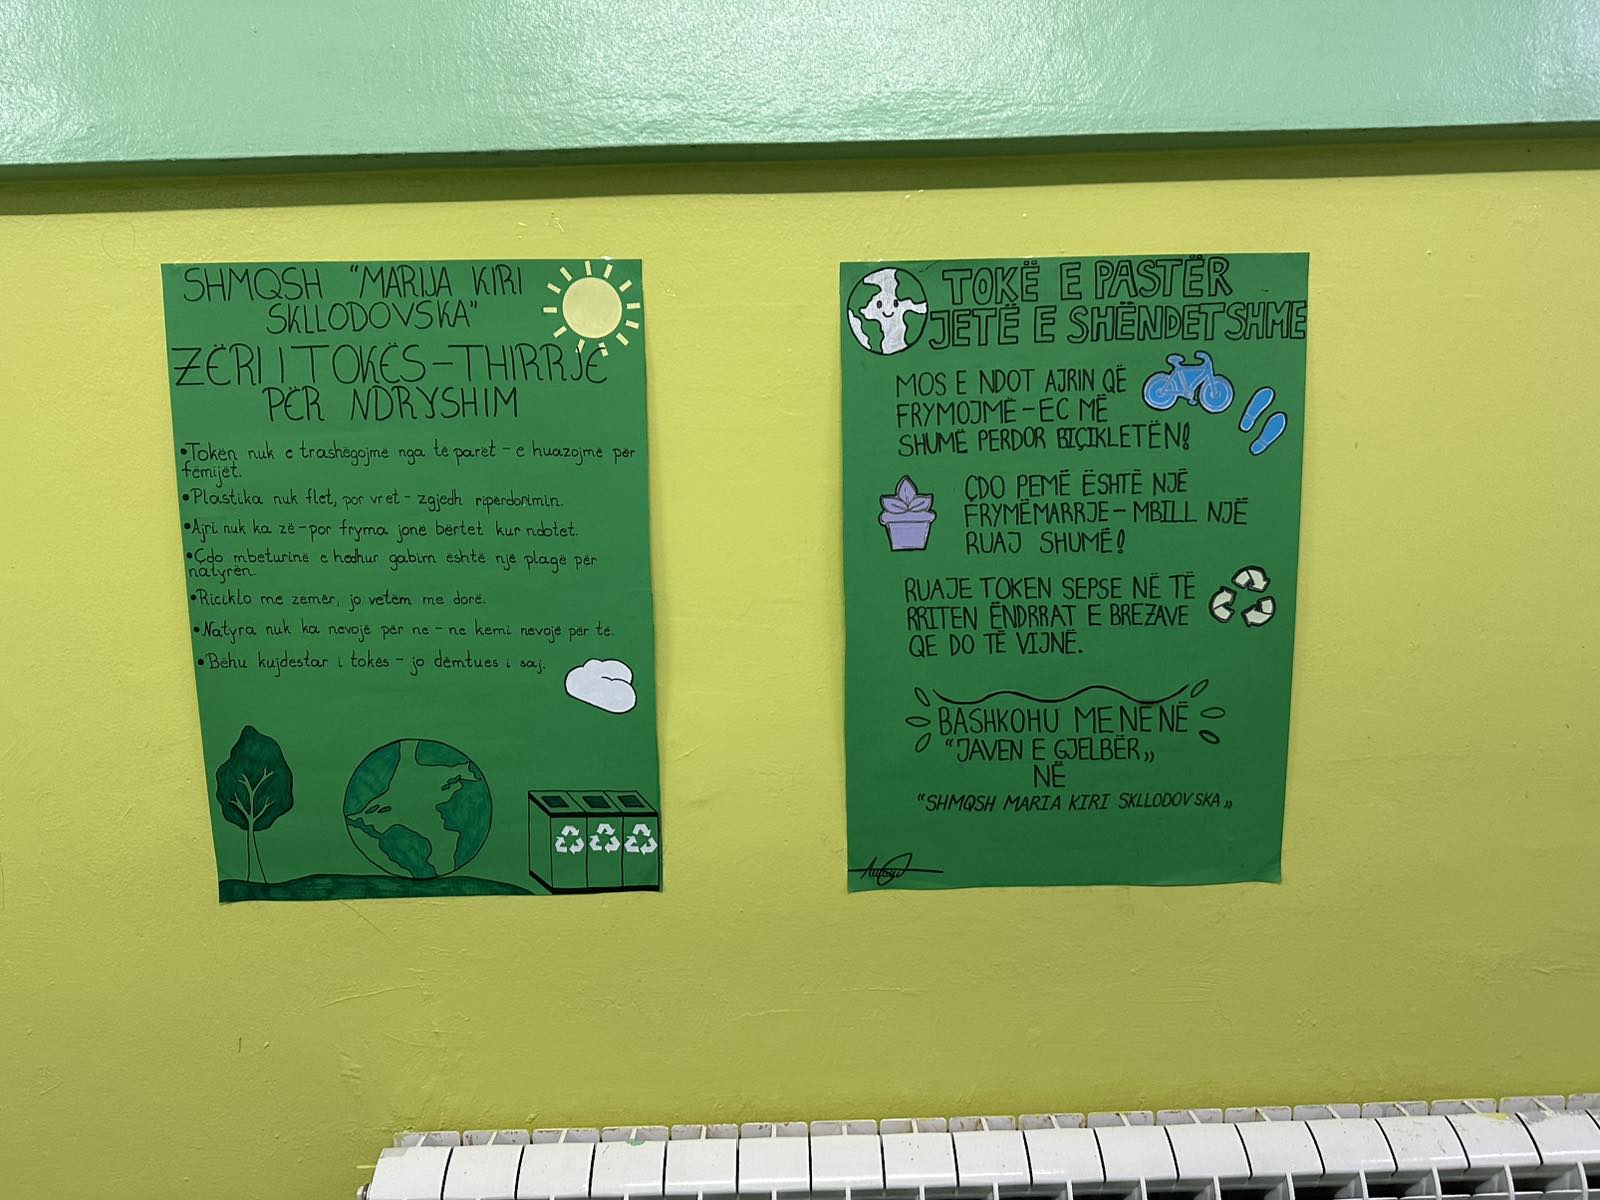 SHMQSH "MARIJA KIRI
SKLLODOVSKA"
ZËRI I TOKËS-THIRRJE
PËR NDRYSHIM
•Tokën nuk e trashëgojmë nga të parët - e huazojmë për
fëmijët.
•Plastika nuk flet, por vret - zgjedh ripërdorimin.
•Ajri nuk ka zë - por fryma jonë bërtet kur ndotet.
•Çdo mbeturinë e hedhur gabim është një plagë për
natyrën.
•Riciklo me zemër, jo vetëm me dorë.
•Natyra nuk ka nevojë për ne - ne kemi nevojë për të.
•Bëhu kujdestar i tokës - jo dëmtues i saj.
TOKË E PASTËR
JETË E SHËNDETSHME
MOS E NDOT AJRIN QË
FRYMOJMË - EC MË
SHUMË PERDOR BIÇIKLETËN!
ÇDO PEMË ËSHTË NJË
FRYMËMARRJE - MBILL NJË
RUAJ SHUMË!
RUAJE TOKEN SEPSE NË TË
RRITEN ËNDRRAT E BREZAVE
QE DO TË VIJNË.
BASHKOHU ME NE NË
"JAVEN E GJELBËR„
NË
"SHMQSH MARIA KIRI SKLLODOVSKA„